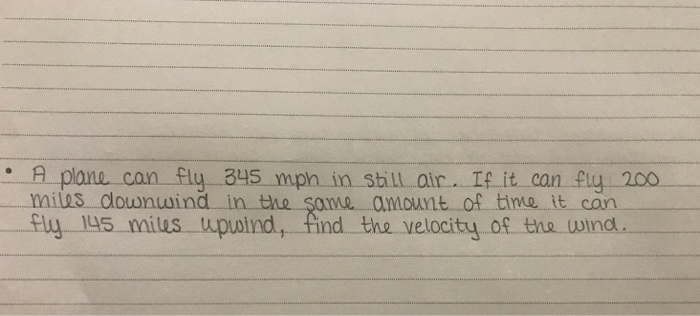 • A plane can fly 345 mph in still air. If it can fly 200
miles downwind in the same amount of time it can
fly 145 miles upwind, find the velocity of the wind.